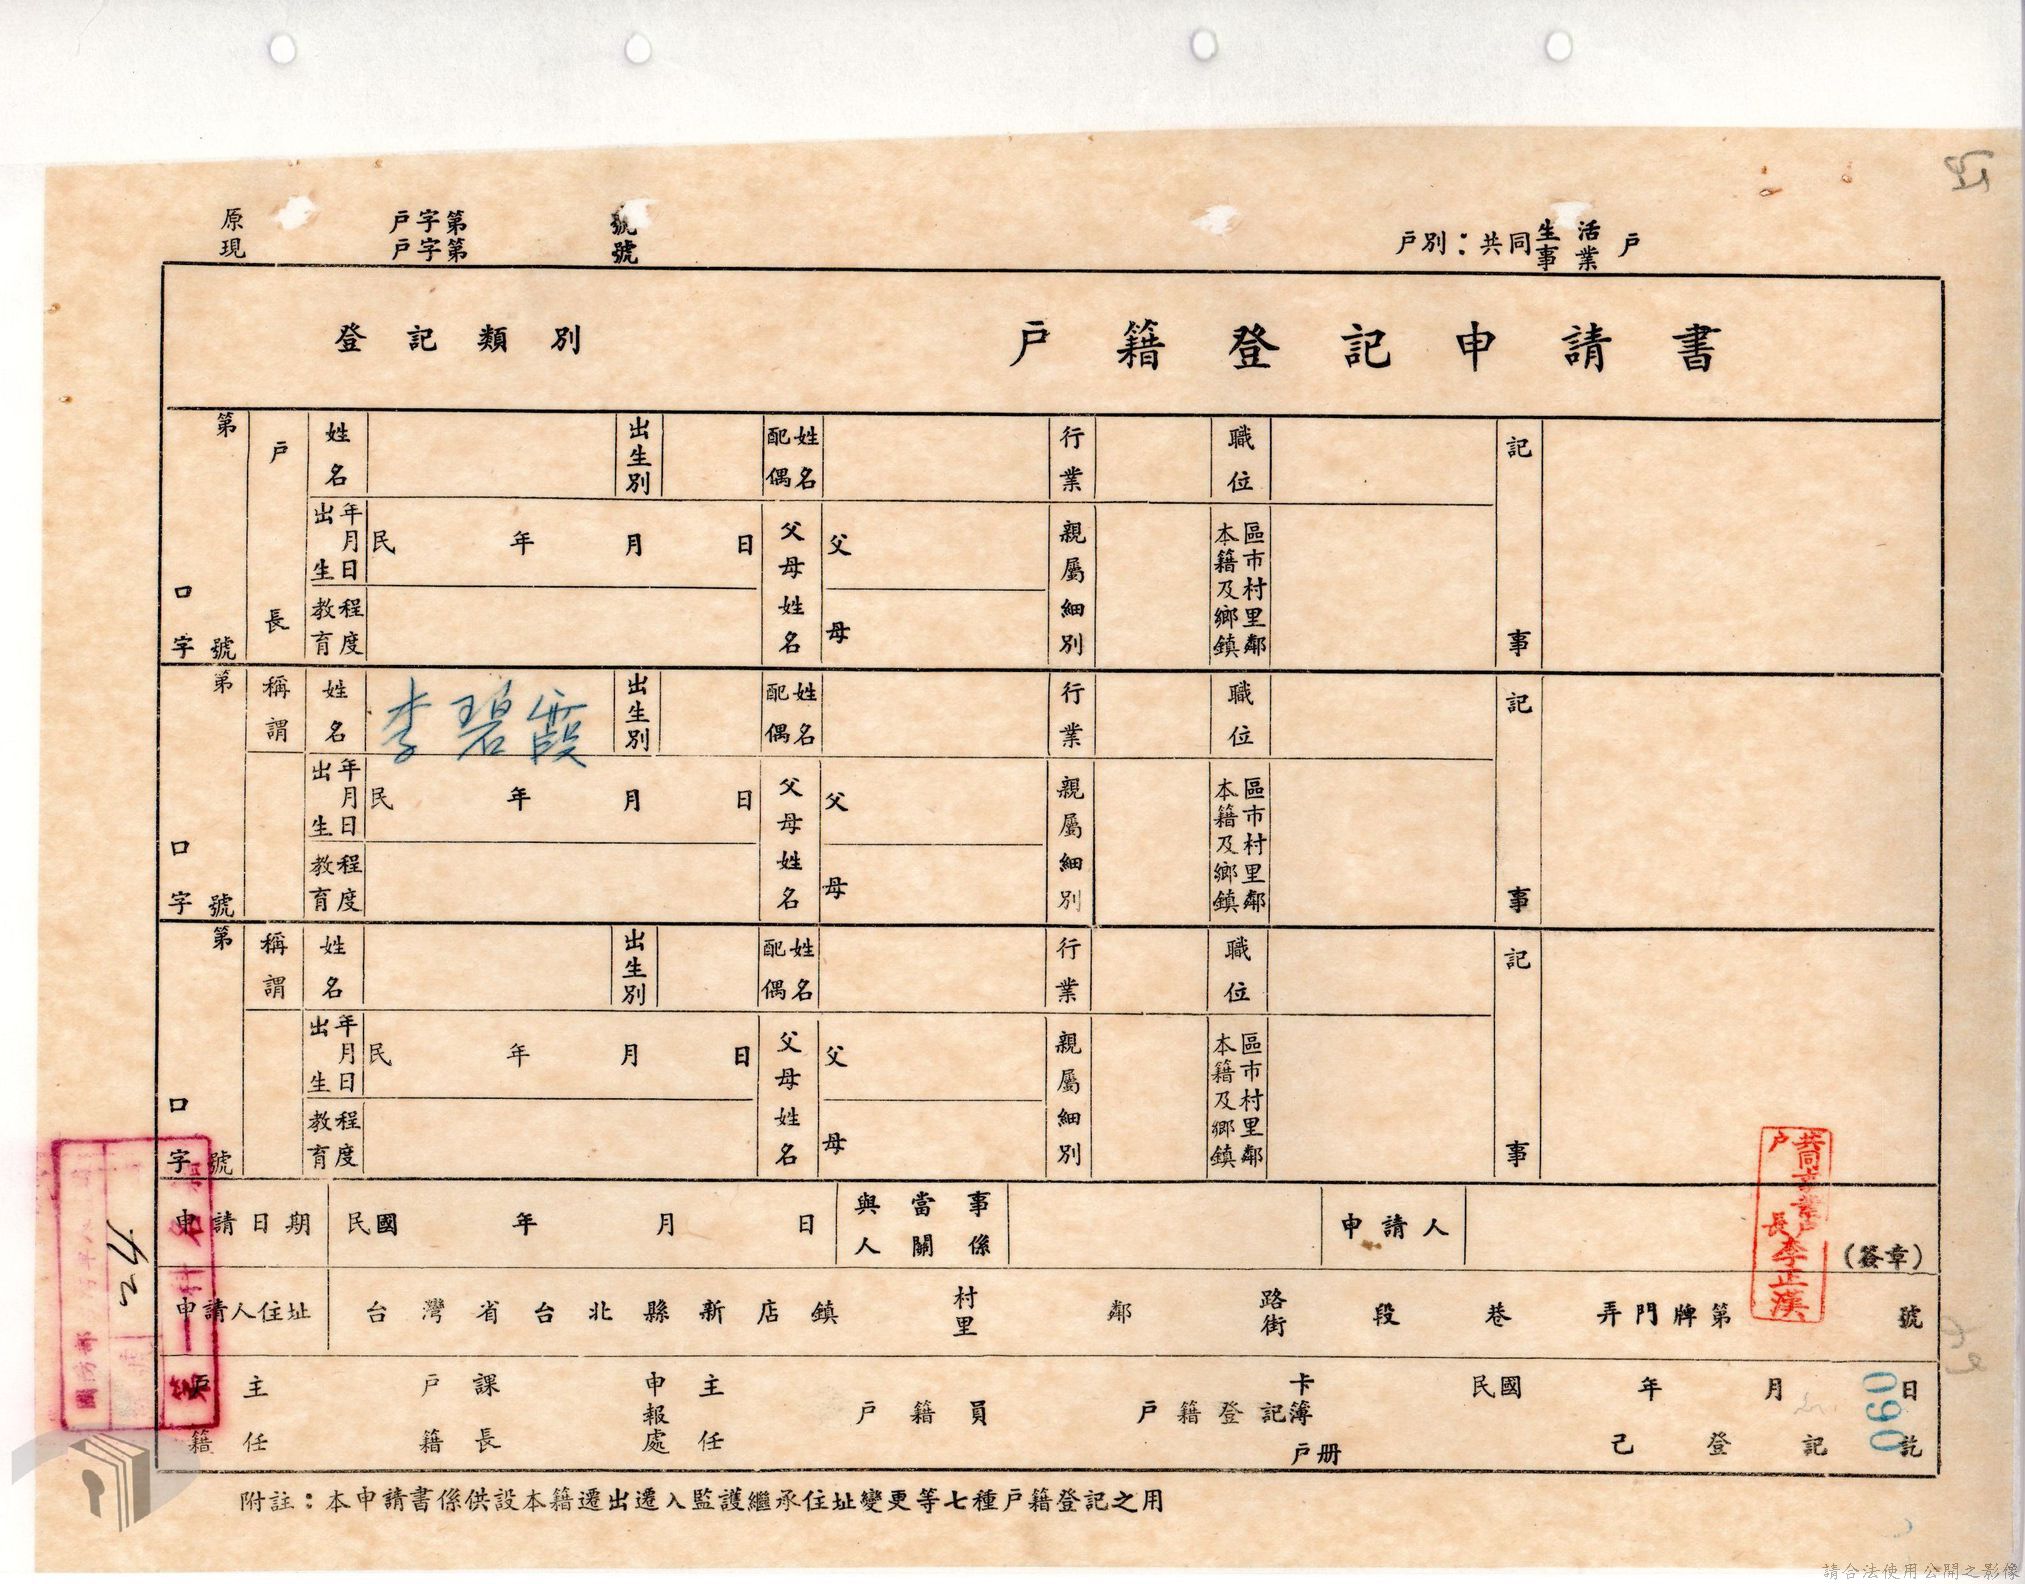 原 戶字第 號
現 戶字第 號
戶別：共同生活事業戶
登記類別
戶籍登記申請書
第 口字 號
戶長
姓名
出生別
配偶姓名
行業
職位
記事
出生年月日 民 年 月 日
父母姓名 父 母
親屬細別
本籍及鄉鎮區市村里鄰
教育程度
第 口字 號
稱謂
姓名 李碧霞
出生別
配偶姓名
行業
職位
記事
出生年月日 民 年 月 日
父母姓名 父 母
親屬細別
本籍及鄉鎮區市村里鄰
教育程度
第 口字 號
稱謂
姓名
出生別
配偶姓名
行業
職位
記事
出生年月日 民 年 月 日
父母姓名 父 母
親屬細別
本籍及鄉鎮區市村里鄰
教育程度
申請日期 民國 年 月 日 與當事人關係 申請人 (簽章)
共同事業戶戶長李正漢
申請人住址 台灣省台北縣新店鎮 村里 鄰 路街 段 巷 弄門牌第 號
戶籍主任 戶籍課長 申報處主任 戶籍員 戶籍登記卡簿戶册 民國 年 月 日 已登記訖
060
國防部
附註：本申請書係供設本籍遷出遷入監護繼承住址變更等七種戶籍登記之用
請合法使用公開之影像